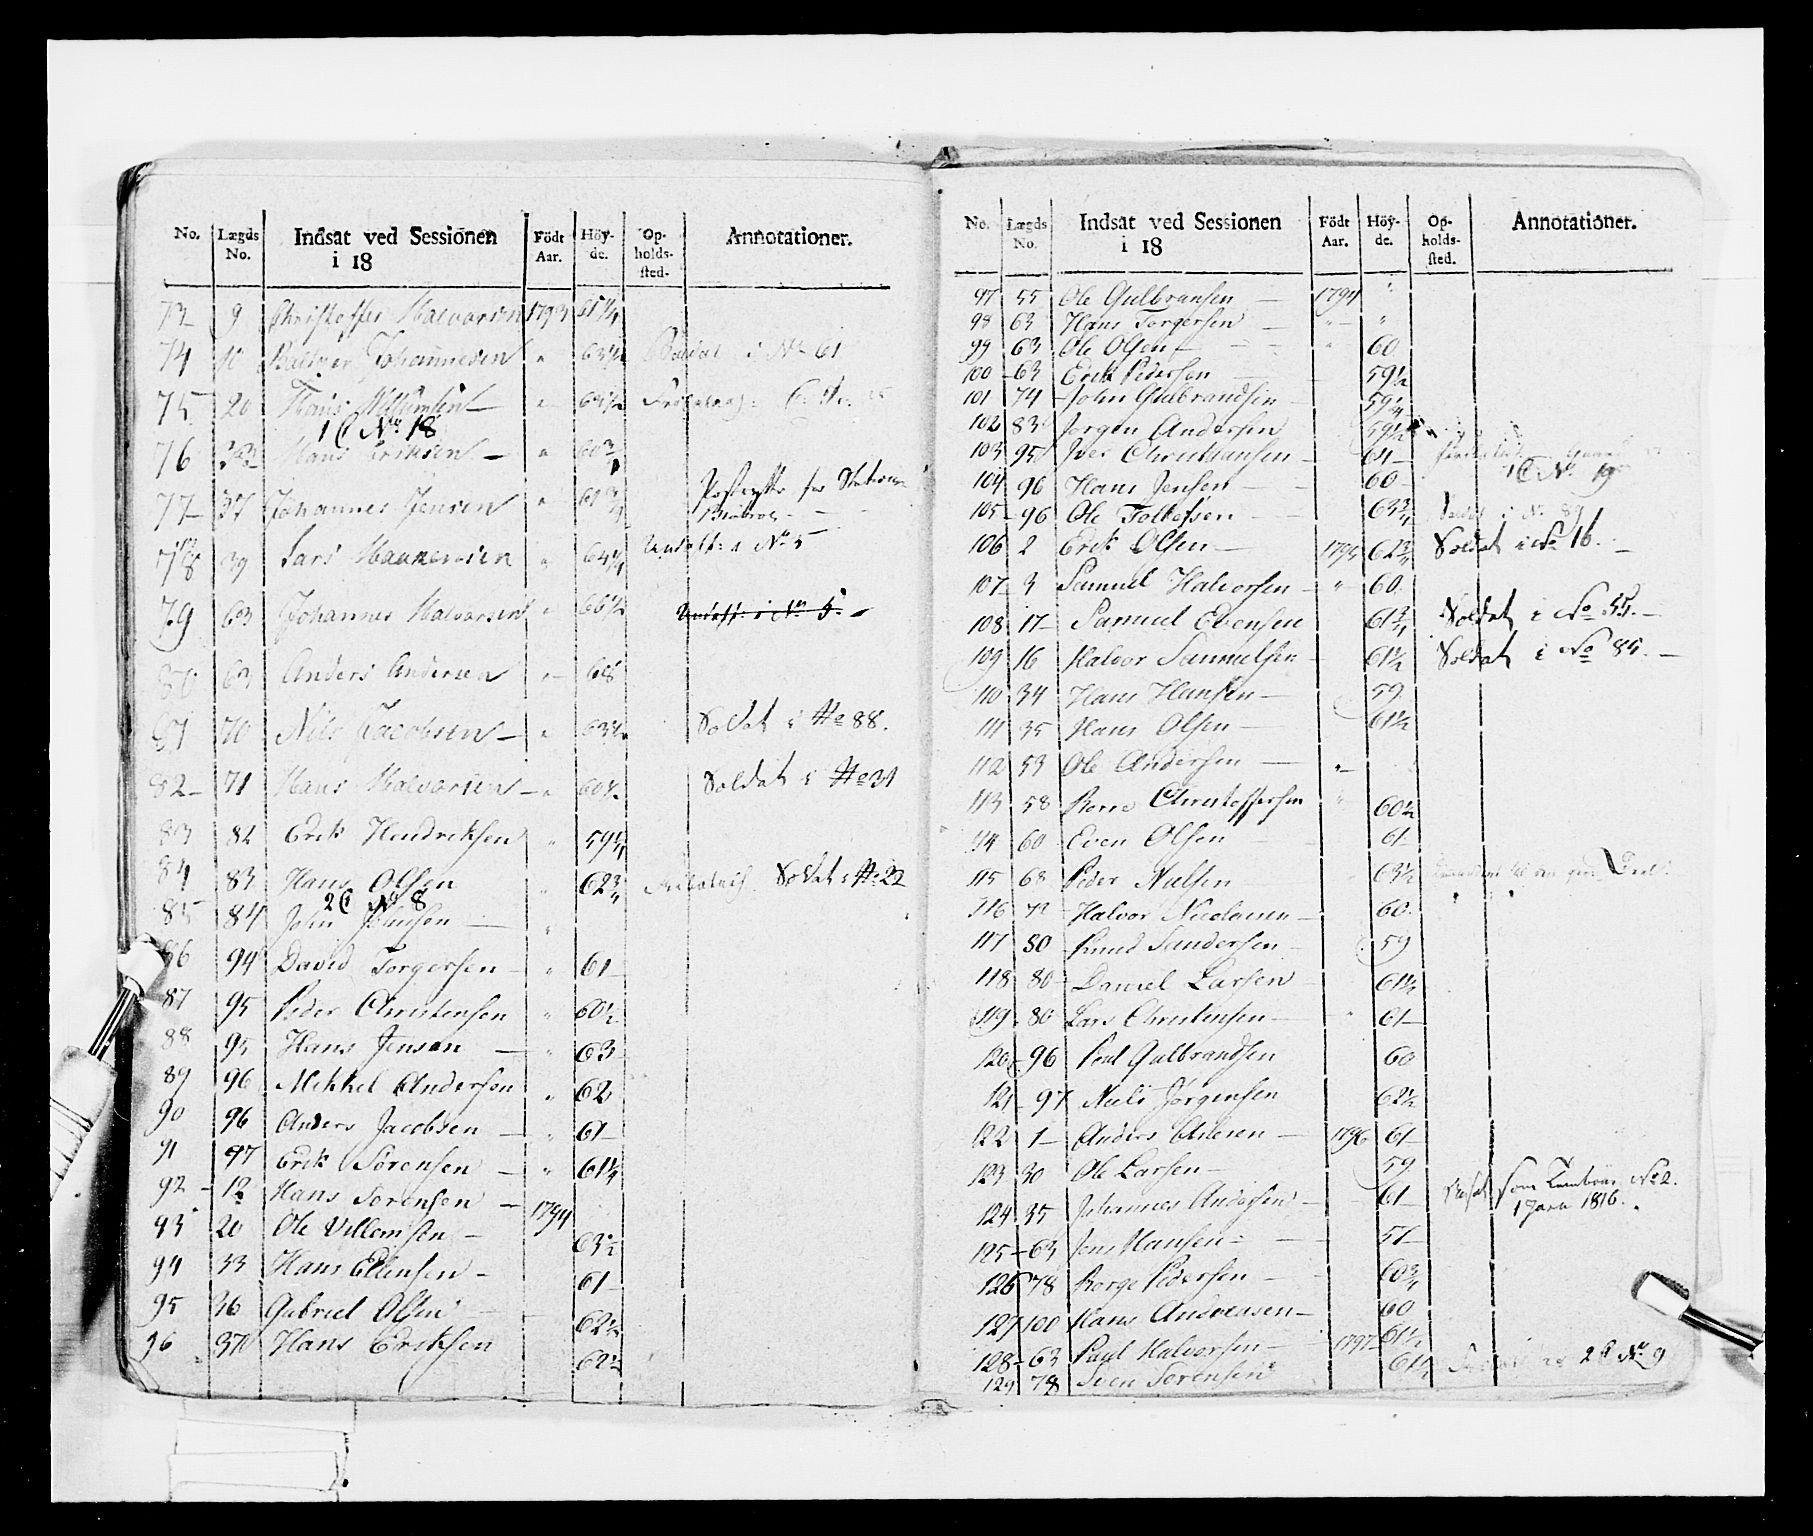 No. Lægds No. Indsat ved Sessionen i 18 Födt Aar. Höyde. Opholdssted. Annotationer.
73 9 Christoffer Halvorsen 1793 61 1/4
74 10 Johannesen " 63 1/2 Soldat i No 61
75 20 Hans " 64 1/2
1 C No 18
76 33 Hans Eriksen " 60 3/4
77 37 Johannes Jensen " 61 3/4
78 39 Lars " 64 1/4 Undoff: i No 5
79 63 Johannes Halvorsen " 66 1/2 Undoff: i No 5.
80 63 Anders Andersen " 68
81 70 Nils Jacobsen " 63 1/2 Soldat i No 88.
82 71 Hans Halvorsen " 60 1/2 Soldat i No 31
83 82 Erik Hendriksen " 59 1/4
84 83 Hans Olsen " 62 3/4 Soldat i No 22
2 C No 8
85 84 John Johnsen "
86 94 David Torgersen " 61
87 95 Peder Christensen " 60 1/2
88 95 Hans Jensen " 63
89 96 Mikkel Andersen " 62
90 96 Anders Jacobsen " 61
91 97 Erik Sörensen " 61 1/4
92 12 Hans Sorensen 1794
93 20 Ole Villemsen 63 1/2
94 33 Hans Ellensen 61
95 36 Gabriel Olsen 62 1/2
96 37 Hans Eriksen 62 1/2
No. Lægds No. Indsat ved Sessionen i 18 Födt Aar. Höyde. Opholdssted. Annotationer.
97 55 Ole Gulbransen 1794 "
98 63 Hans Torgersen " "
99 63 Ole Olsen " 60
100 63 Erik Pedersen 59 1/2
101 74 John Gulbrandsen 59 1/4
102 83 Jorgen Andersen 59 1/2
103 95 Iver Christiansen 61
1 C No 19
104 96 Hans Jensen 60
105 96 Ole Tollefsen 63 3/4 Soldat i No 89
106 2 Erik Olsen 1795 62 3/4 Soldat i No 16.
107 3 Samuel Halvorsen " 60
108 17 Samuel Evensen 61 3/4 Soldat i No 55.
109 16 Halvor Samuelsen 61 1/2 Soldat i No 85.
110 34 Hans Hansen 59
111 35 Hans Olsen 61 1/2
112 53 Ole Andersen "
113 58 Christoffersen " 60 1/2
114 60 Even Olsen 61
115 68 Peder Nielsen 63 1/2
116 72 Halvor Nicolaisen 60
117 80 Knud Sandersen 59
118 80 Daniel Larsen 61 1/2
119 80 Lars Christensen 61
120 96 Poul Gulbrandsen 60
121 97 Niels Jörgensen 62 1/2
122 1 Anders 1796 61
123 30 Ole Larsen 59
124 35 Johannes Andersen 61 som Tambour No 2.
1 Janu 1816.
125 63 Jens Hansen 57
126 78 Borge Pedersen 60 3/4
127 100 Hans Andreasen 60
128 63 Paul Halvorsen 1797 61 1/2
129 78 Sven Sorensen 61 1/2 2 C No 9